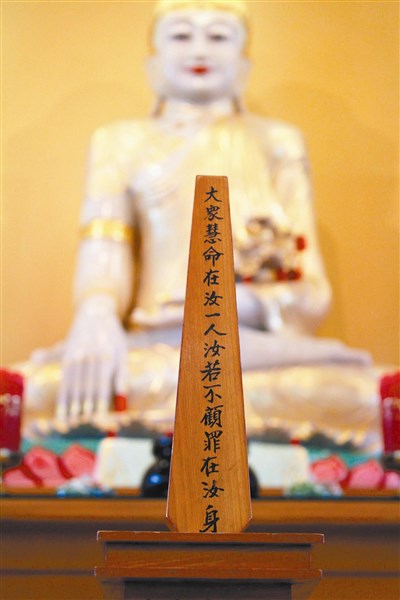 大眾慧命在汝一人汝若不顧罪在汝身